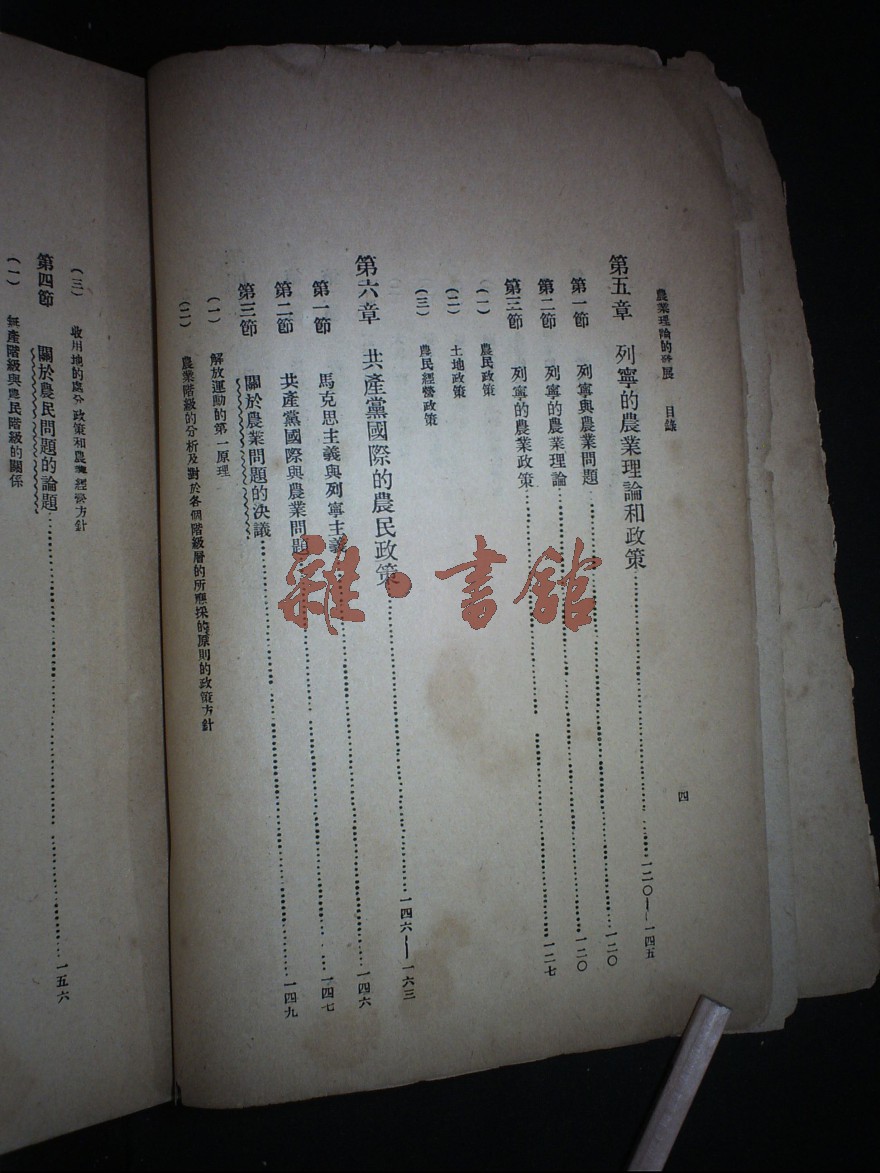 農業理論的發展 目錄 四
第五章 列寧的農業理論和政策……一二〇—一四五
第一節 列寧與農業問題……一二〇
第二節 列寧的農業理論……一二〇
第三節 列寧的農業政策……一二七
(一) 農民政策
(二) 土地政策
(三) 農民經營政策
第六章 共產黨國際的農民政策……一四六—一六三
第一節 馬克思主義與列寧主義……一四六
第二節 共產黨國際與農業問題……一四七
第三節 關於農業問題的決議……一四九
(一) 解放運動的第一原理
(二) 農業階級的分析及對於各個階級層的所應採的原則的政策方針
(三) 收用地的處分政策和農業經營方針
第四節 關於農民問題的論題……一五六
(一) 無產階級與農民階級的關係
雜·書館